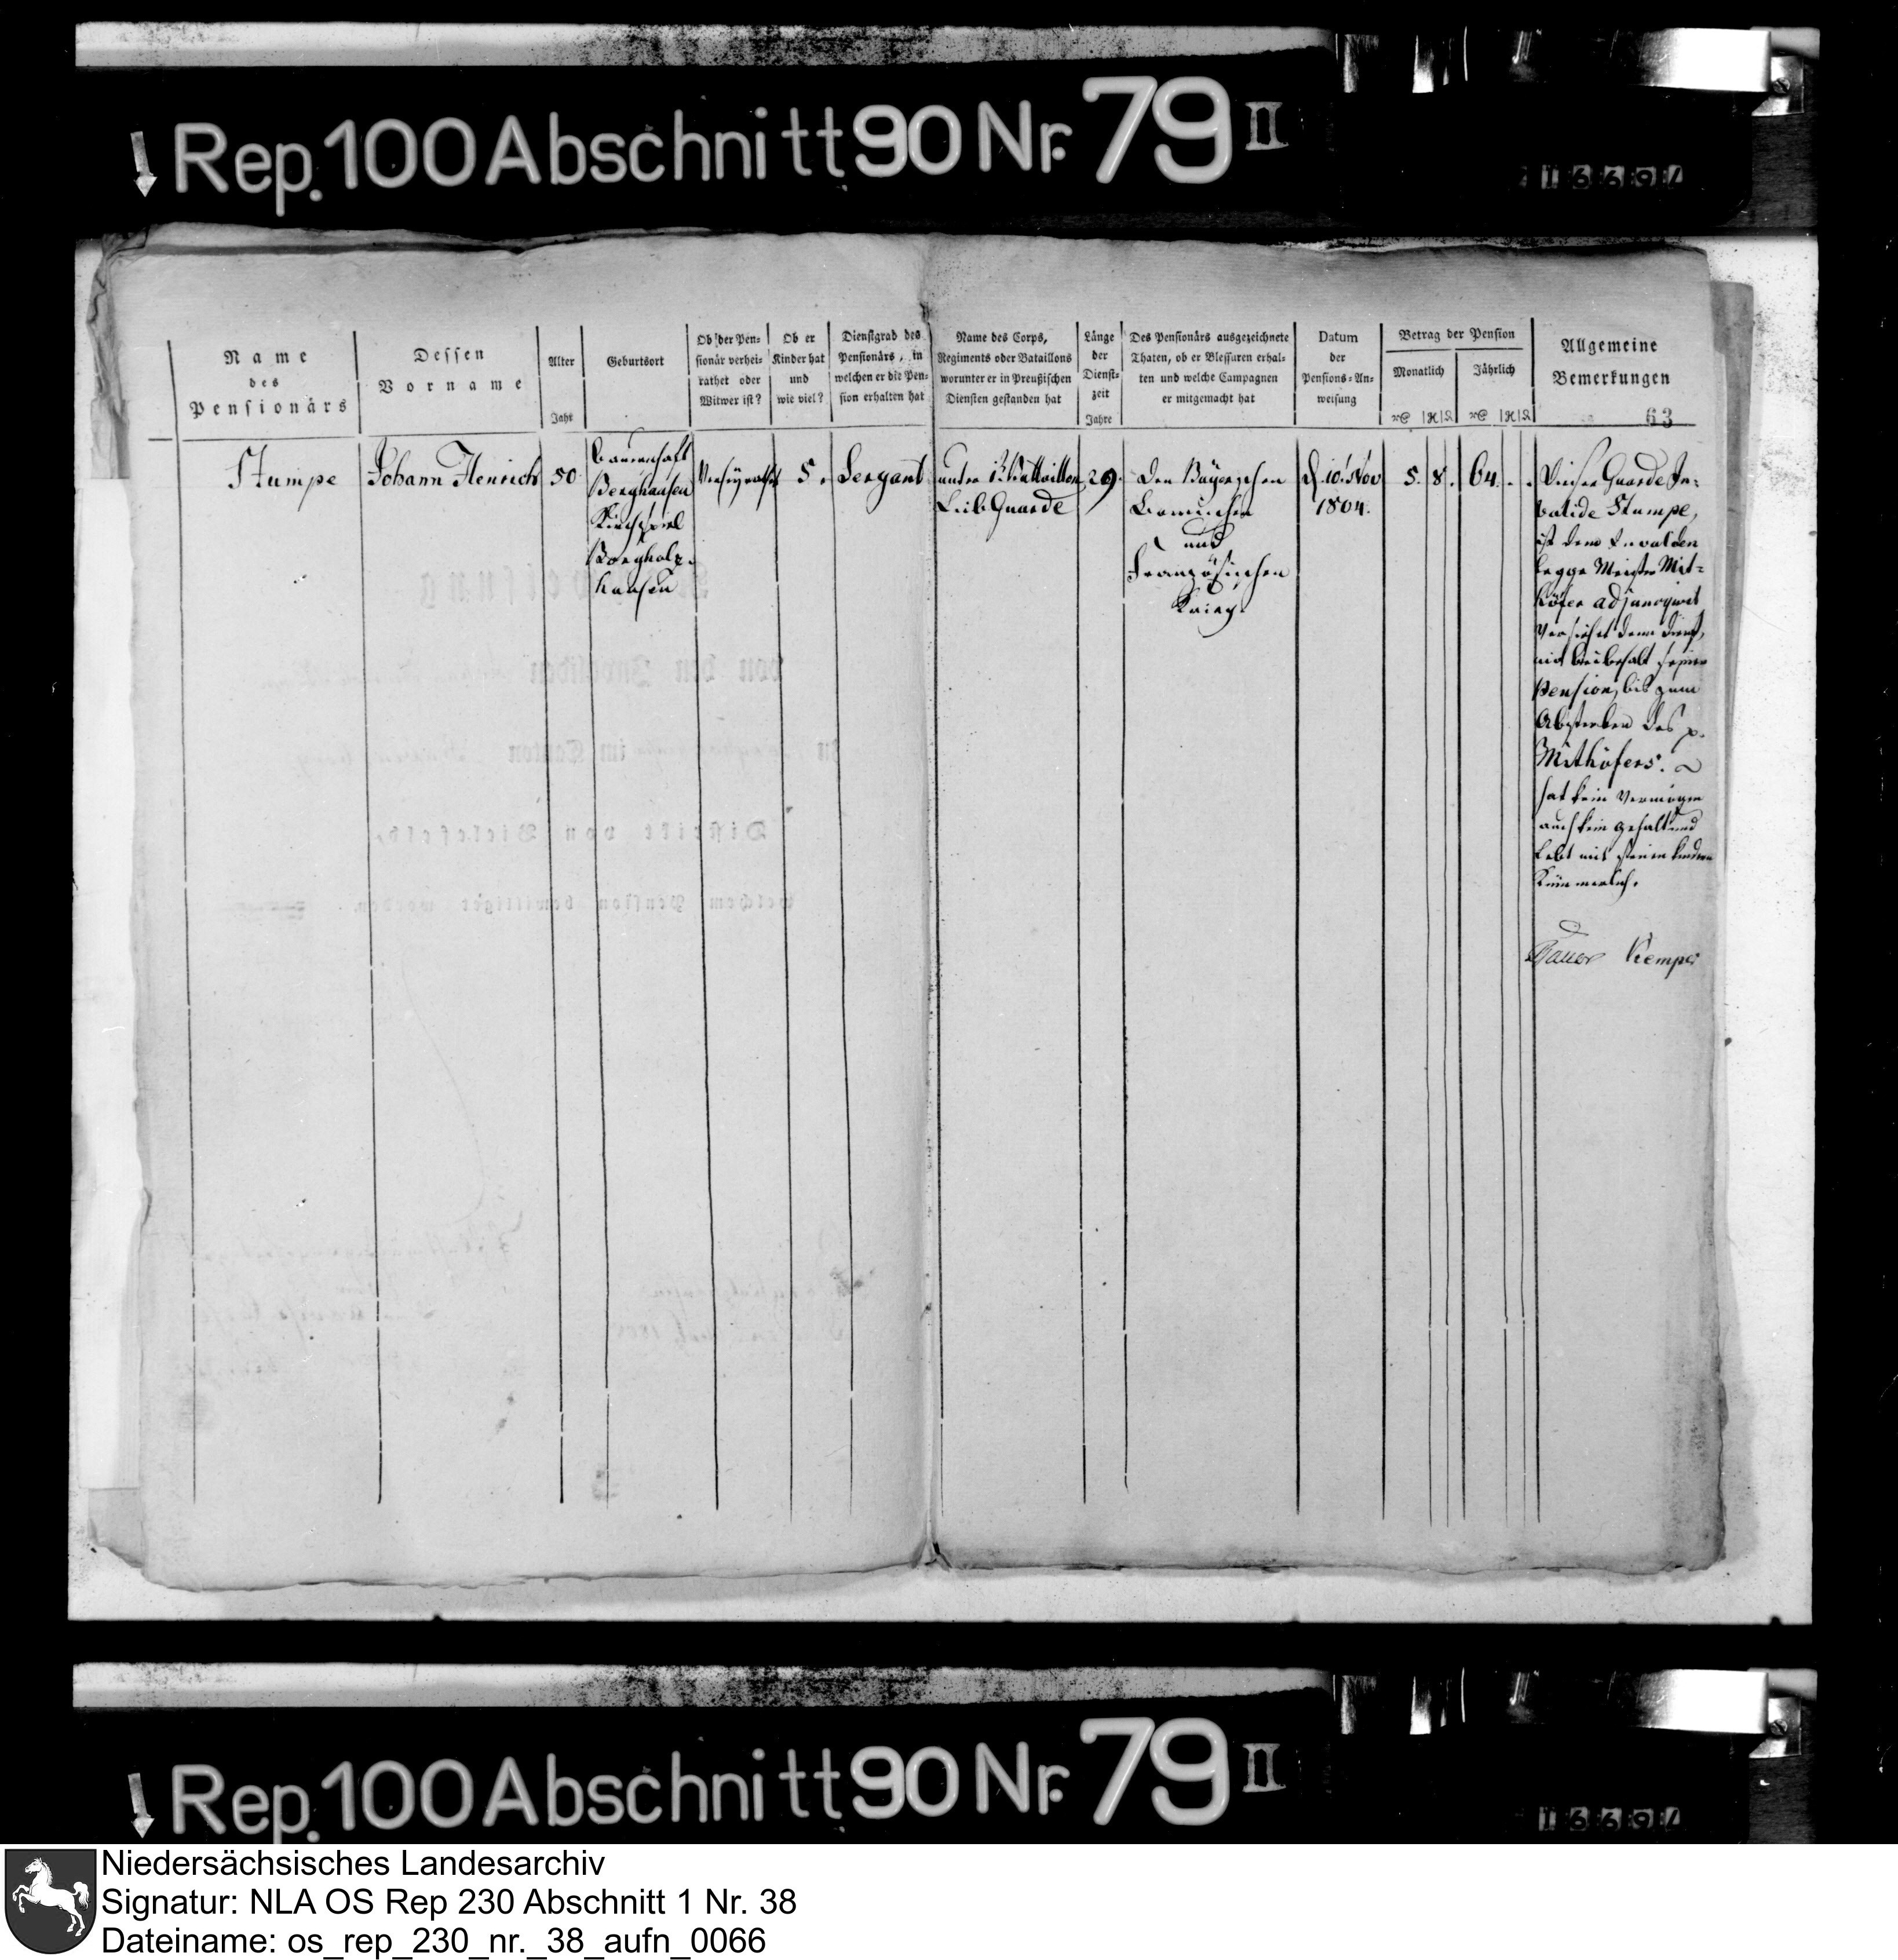 Rep. 100 Abschnitt 90 Nr. 79 II
16697
Name
des
Pensionärs
Dessen
Vorname
Alter
Jahr
Geburtsort
Ob der Pen-
sionär verhei-
rathet oder
Witwer ist?
Ob er
Kinder hat
und
wie viel?
Dienstgrad des
Pensionärs, in
welchen er die Pen-
sion erhalten hat
Name des Corps,
Regiments oder Bataillons
worunter er in Preußischen
Diensten gestanden hat
Länge
der
Dienst-
zeit
Jahre
Des Pensionärs ausgezeichnete
Thaten, ob er Blessuren erhal-
ten und welche Campagnen
er mitgemacht hat
Datum
der
Pensions-An-
weisung
Betrag der Pension
Monatlich
Jährlich
Allgemeine
Bemerkungen
63
Stumpe
Johann Henrich
50
Bauerschaft
Berghausen
Kirchspiel
Borgholz-
hausen
Verheyrathet
5.
Sergant
unter Battaillon
Leib Guarde
29.
Den Bayerschen
und
Französischen
Krieg.
d. 10t Nov
1804.
5. 8.
64. . .
Dieser Guarde In-
valide Stumpe,
ist dem Invaliden
Legge Meister Mit-
höfer adjungirt
Versiehet denn Dienst,
mit beibehalt seiner
Pension, bis zum
Absterben des p.
Mithöfers.
hat kein Vermögen
auch kein gehalt und
Lebt mit seinen kindern
Kümmerlich.
Bauer Kemper
Rep. 100 Abschnitt 90 Nr. 79 II
16697
Niedersächsisches Landesarchiv
Signatur: NLA OS Rep 230 Abschnitt 1 Nr. 38
Dateiname: os_rep_230_nr._38_aufn_0066